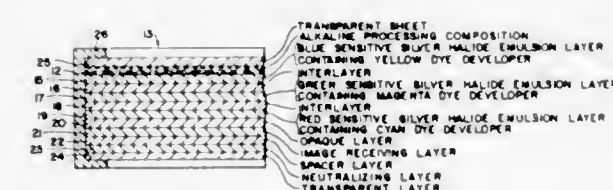 26 13
25
12
15
16
17
18
19
20
21
22
23
24
TRANSPARENT SHEET
ALKALINE PROCESSING COMPOSITION
BLUE SENSITIVE SILVER HALIDE EMULSION LAYER
CONTAINING YELLOW DYE DEVELOPER
INTERLAYER
GREEN SENSITIVE SILVER HALIDE EMULSION LAYER
CONTAINING MAGENTA DYE DEVELOPER
INTERLAYER
RED SENSITIVE SILVER HALIDE EMULSION LAYER
CONTAINING CYAN DYE DEVELOPER
OPAQUE LAYER
IMAGE RECEIVING LAYER
SPACER LAYER
NEUTRALIZING LAYER
TRANSPARENT LAYER